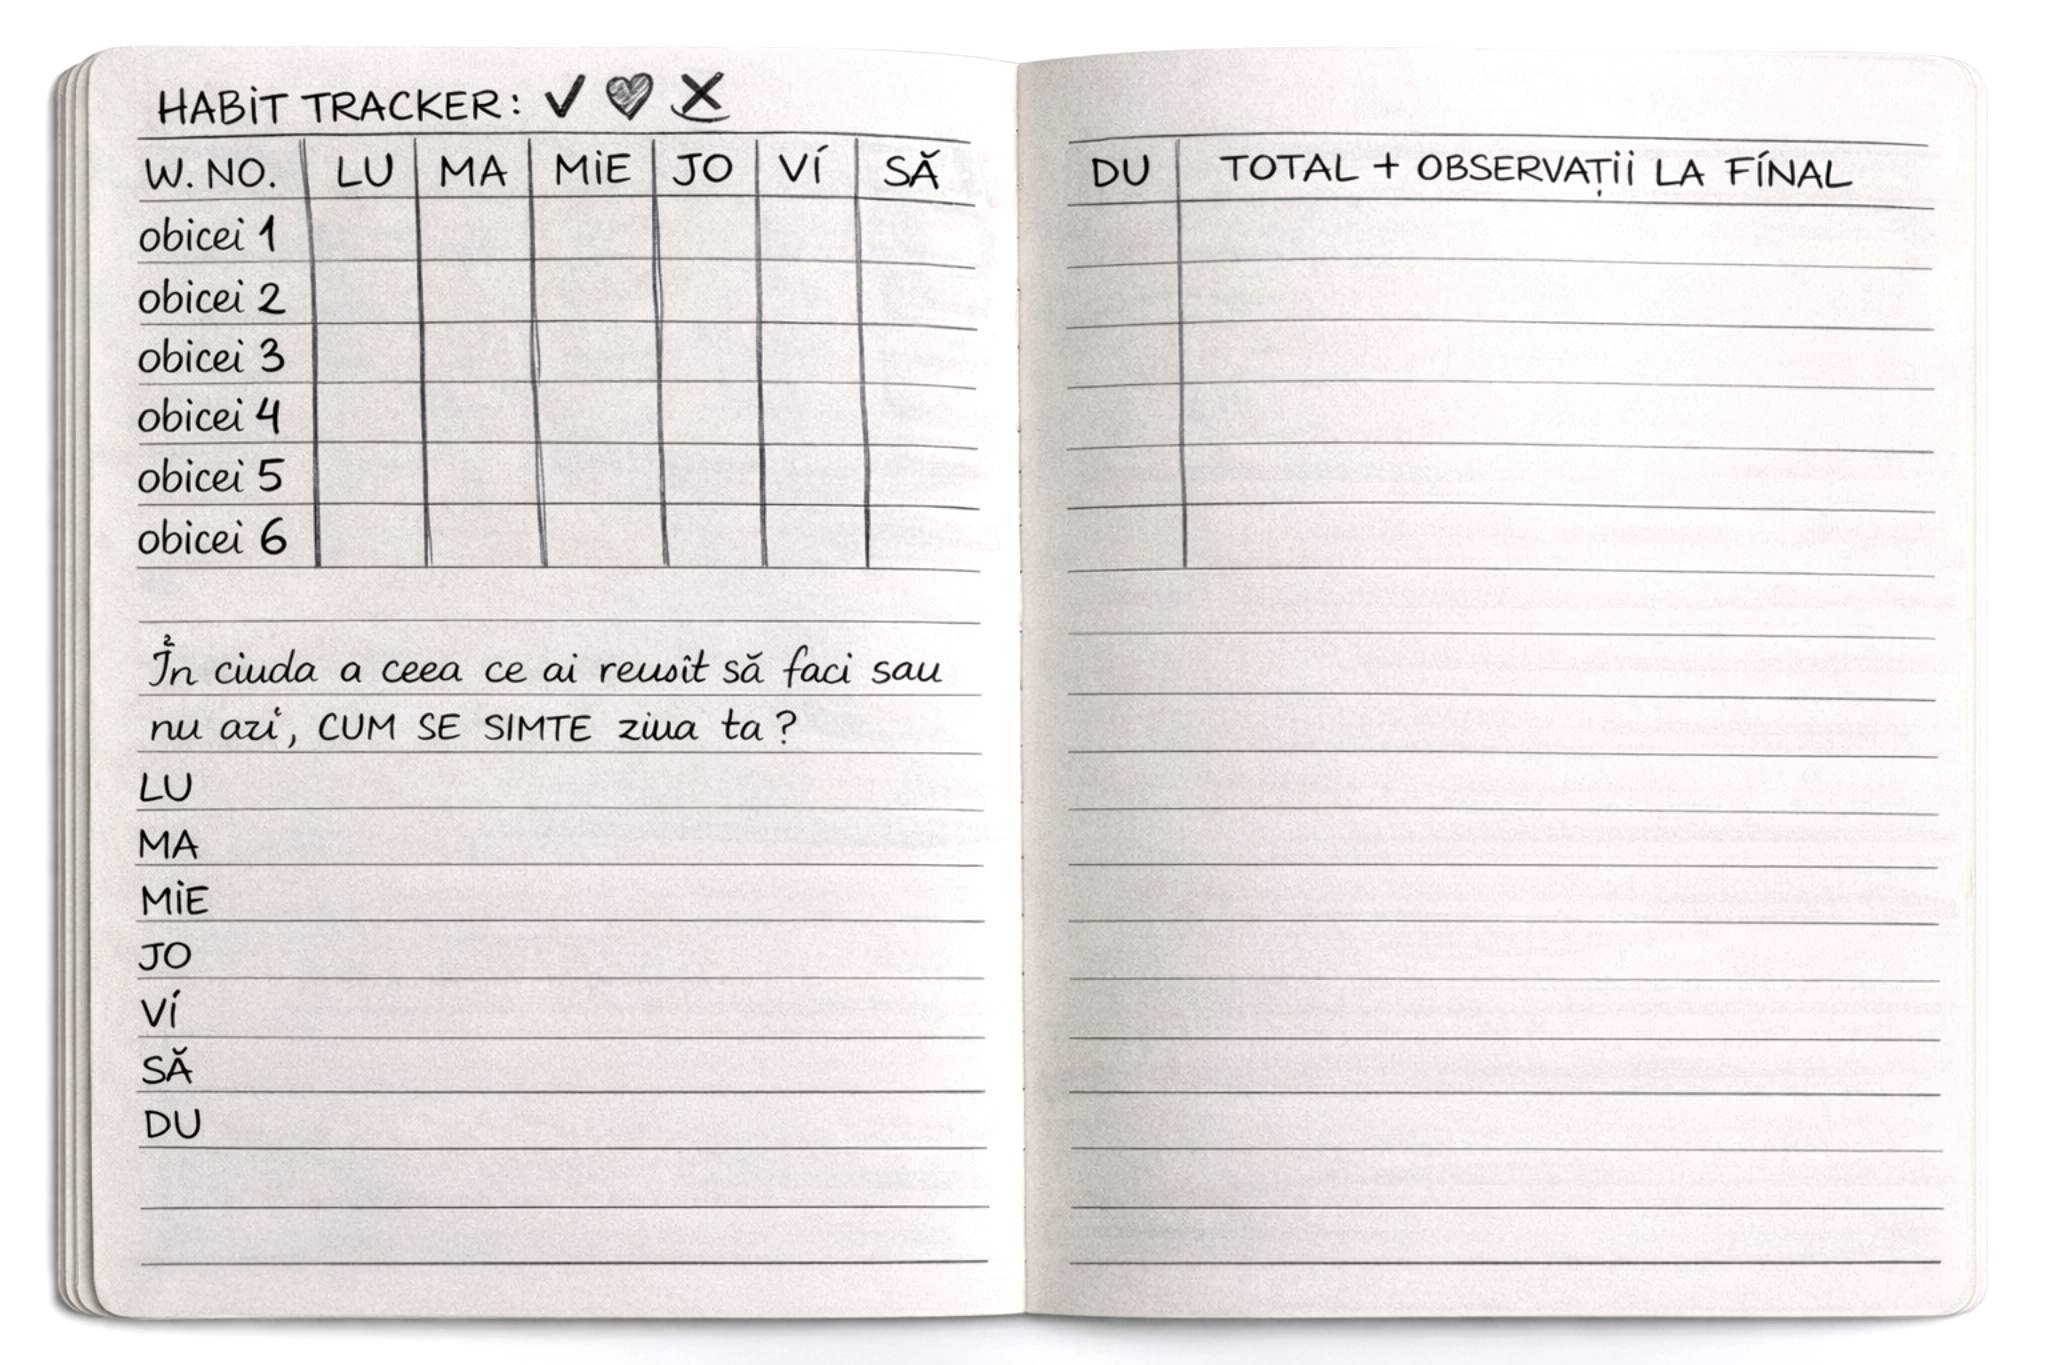 HABIT TRACKER: ✓ ♥ X
W. NO. LU MA MIE JO VÍ SĂ
obicei 1
obicei 2
obicei 3
obicei 4
obicei 5
obicei 6
În ciuda a ceea ce ai reusit să faci sau
nu azi, CUM SE SIMTE ziua ta?
LU
MA
MIE
JO
VÍ
SĂ
DU
DU TOTAL + OBSERVAȚII LA FÍNAL